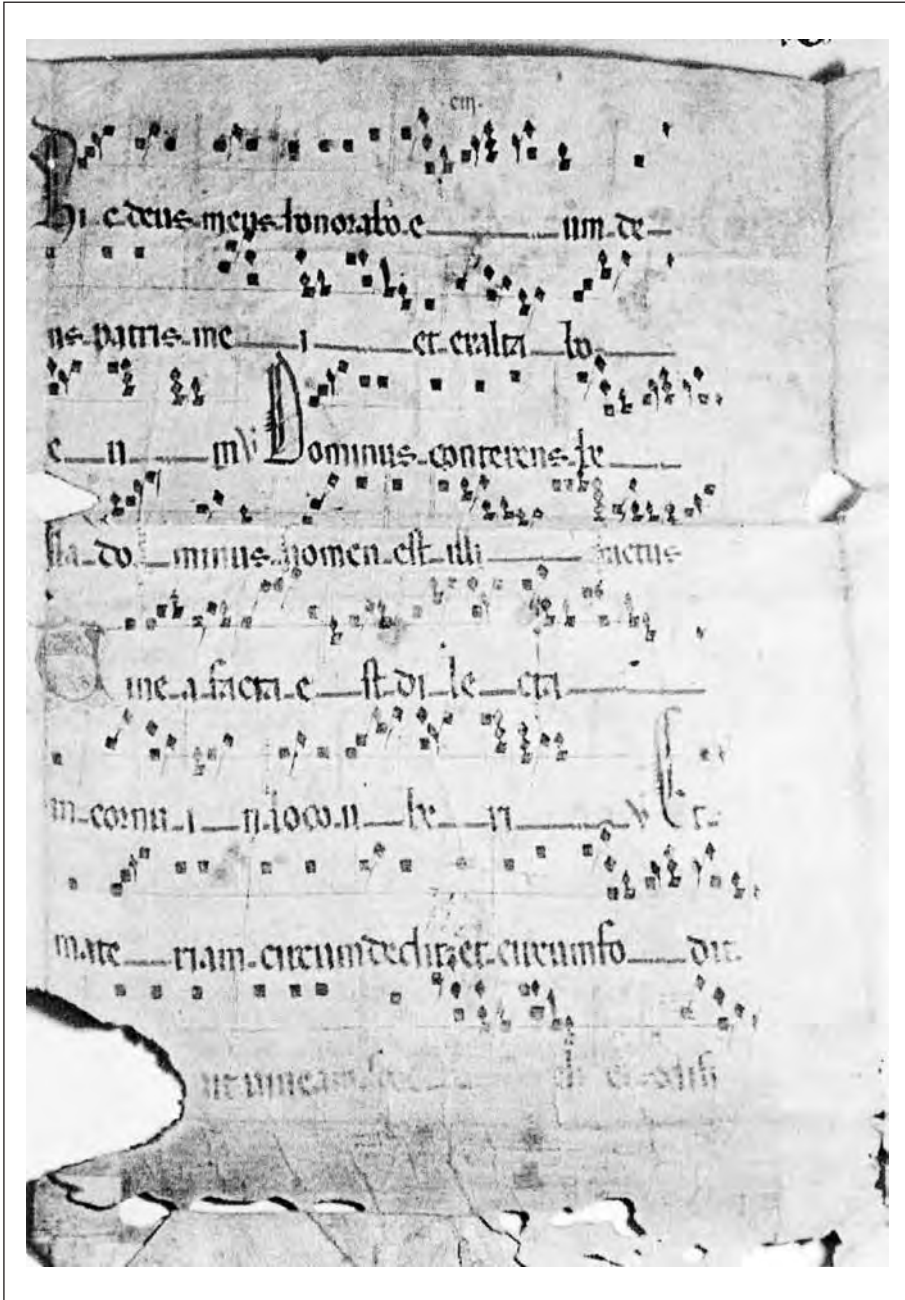 cm.
Hi c deus meus honorabo e um de
us patris me i et exalta bo
e u m V Dominus conterens be
lla do minus nomen est illi factus
me a facta e st di le cta
in cornu i n loco u be ri V Et
mate riam circumdedit et circumfo dit
ut vineam